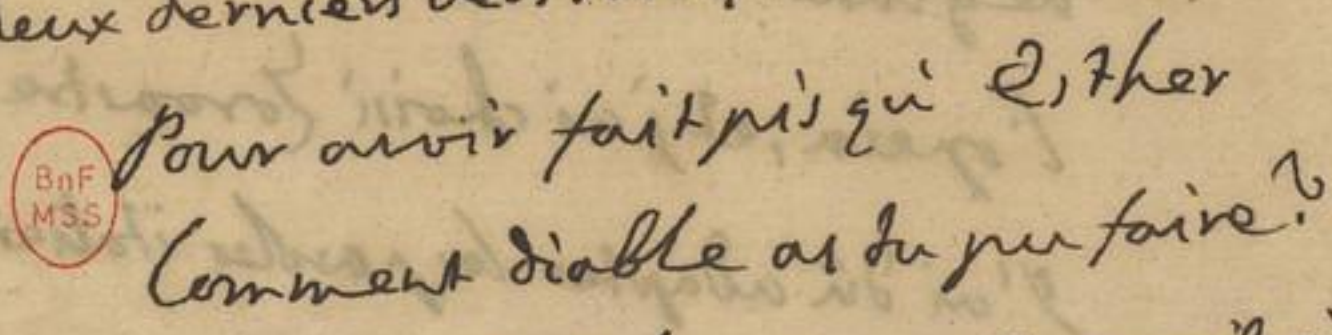 deux derniers
Pour avoir fait pis qu' Esther
BnF
MSS
Comment diable as tu pu faire?